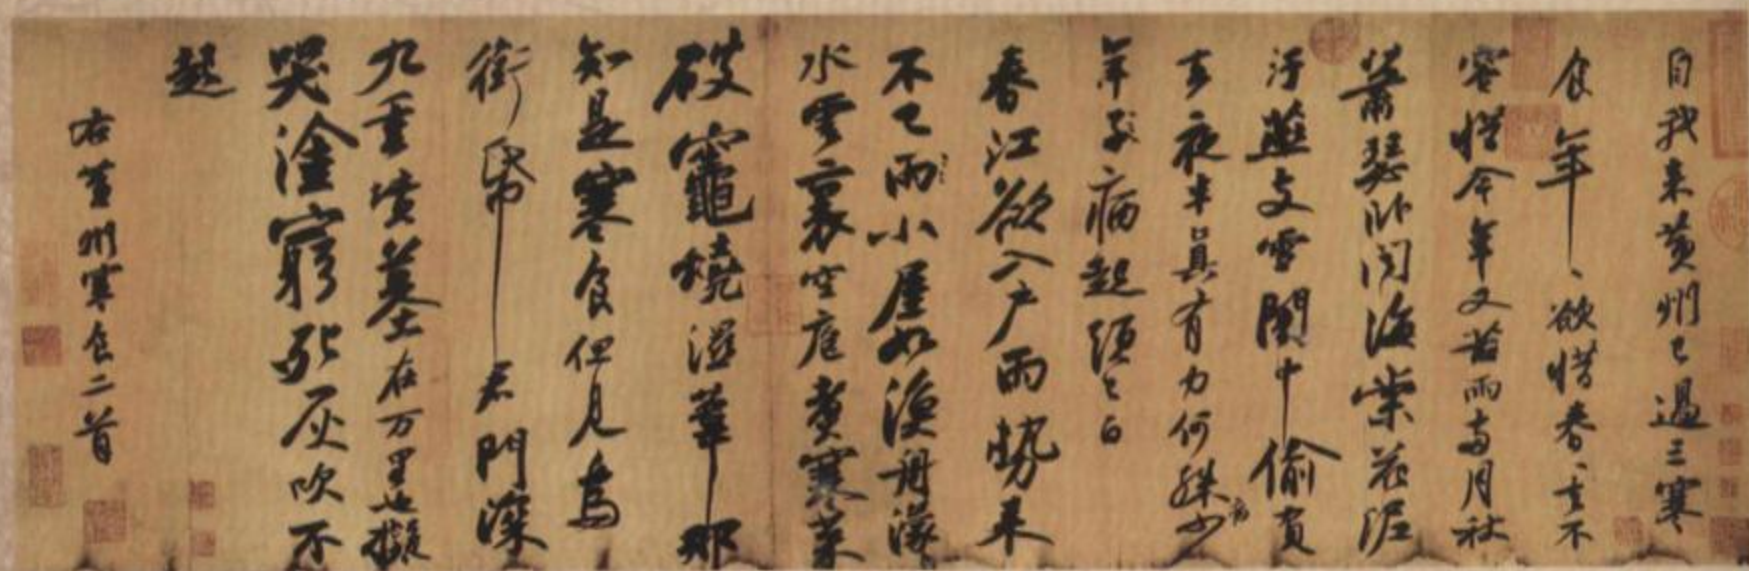 自我来黄州已過三寒
食年、欲惜春、去不
容惜今年又苦雨兩月秋
蕭瑟卧聞海棠花泥
汙燕支雪闇中偷負
去夜半真有力何殊病少
年子病起須已白
春江欲入戶雨勢来
不已雨小屋如漁舟濛々
水雲裏空庖煮寒菜
破竈燒濕葦那
知是寒食但見烏
銜帋君門深
九重墳墓在万里也擬
哭塗窮死灰吹不
起
右黄州寒食二首